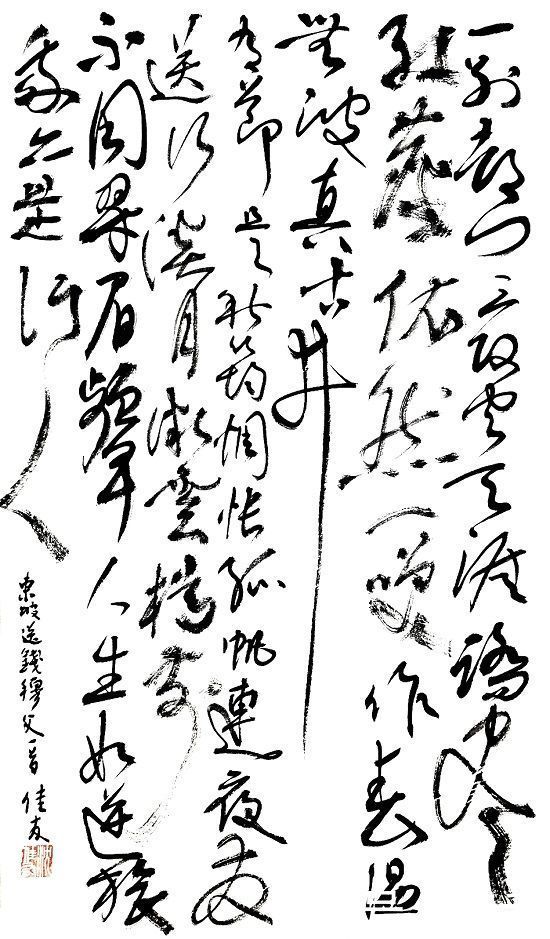 一别都门三改火天涯踏尽
红尘依然一笑作春温
無波真古井
有節是秋筠惆怅孤帆連夜发
送行淡月微雲樽前
不用翠眉颦人生如逆旅
我亦是行人
東坡送錢穆父一首 佳友